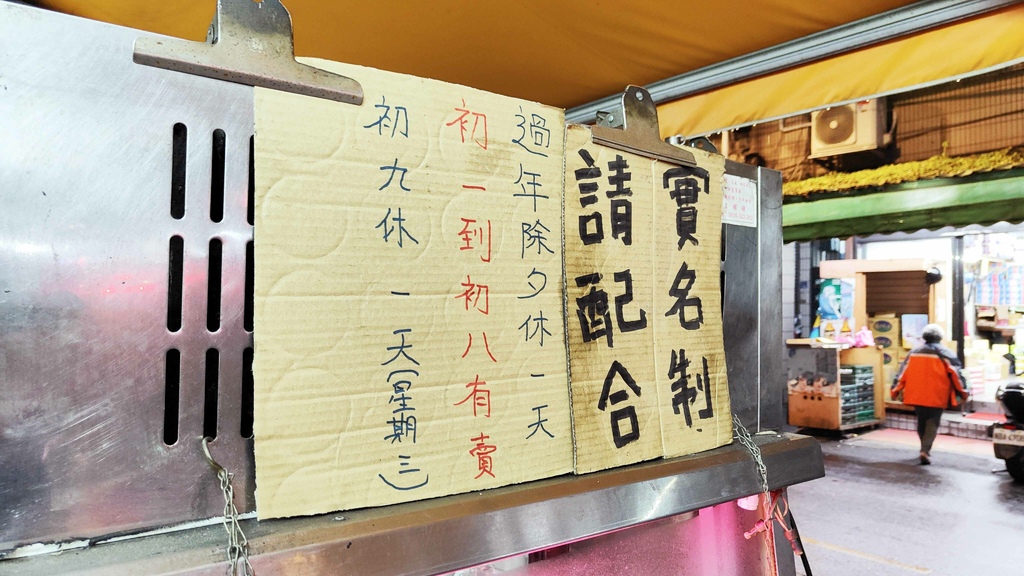 實名制
請配合
過年除夕休一天
初一到初八有賣
初九休一天(星期三)